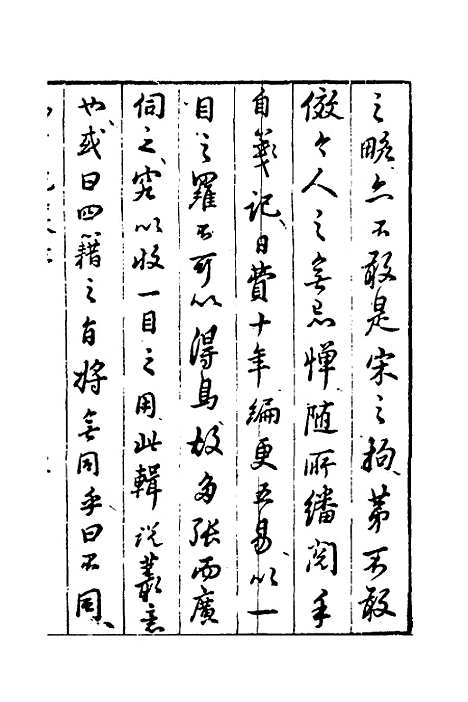 之略亦不敢是宋之拘第不敢
倣今人之無忌憚随所繙閲手
自纂記日費十年編更五易以一
目之羅不可以得鳥故多張而廣
伺之究以收一目之用此輯說叢意
也或曰四籍之旨將無同乎曰不同